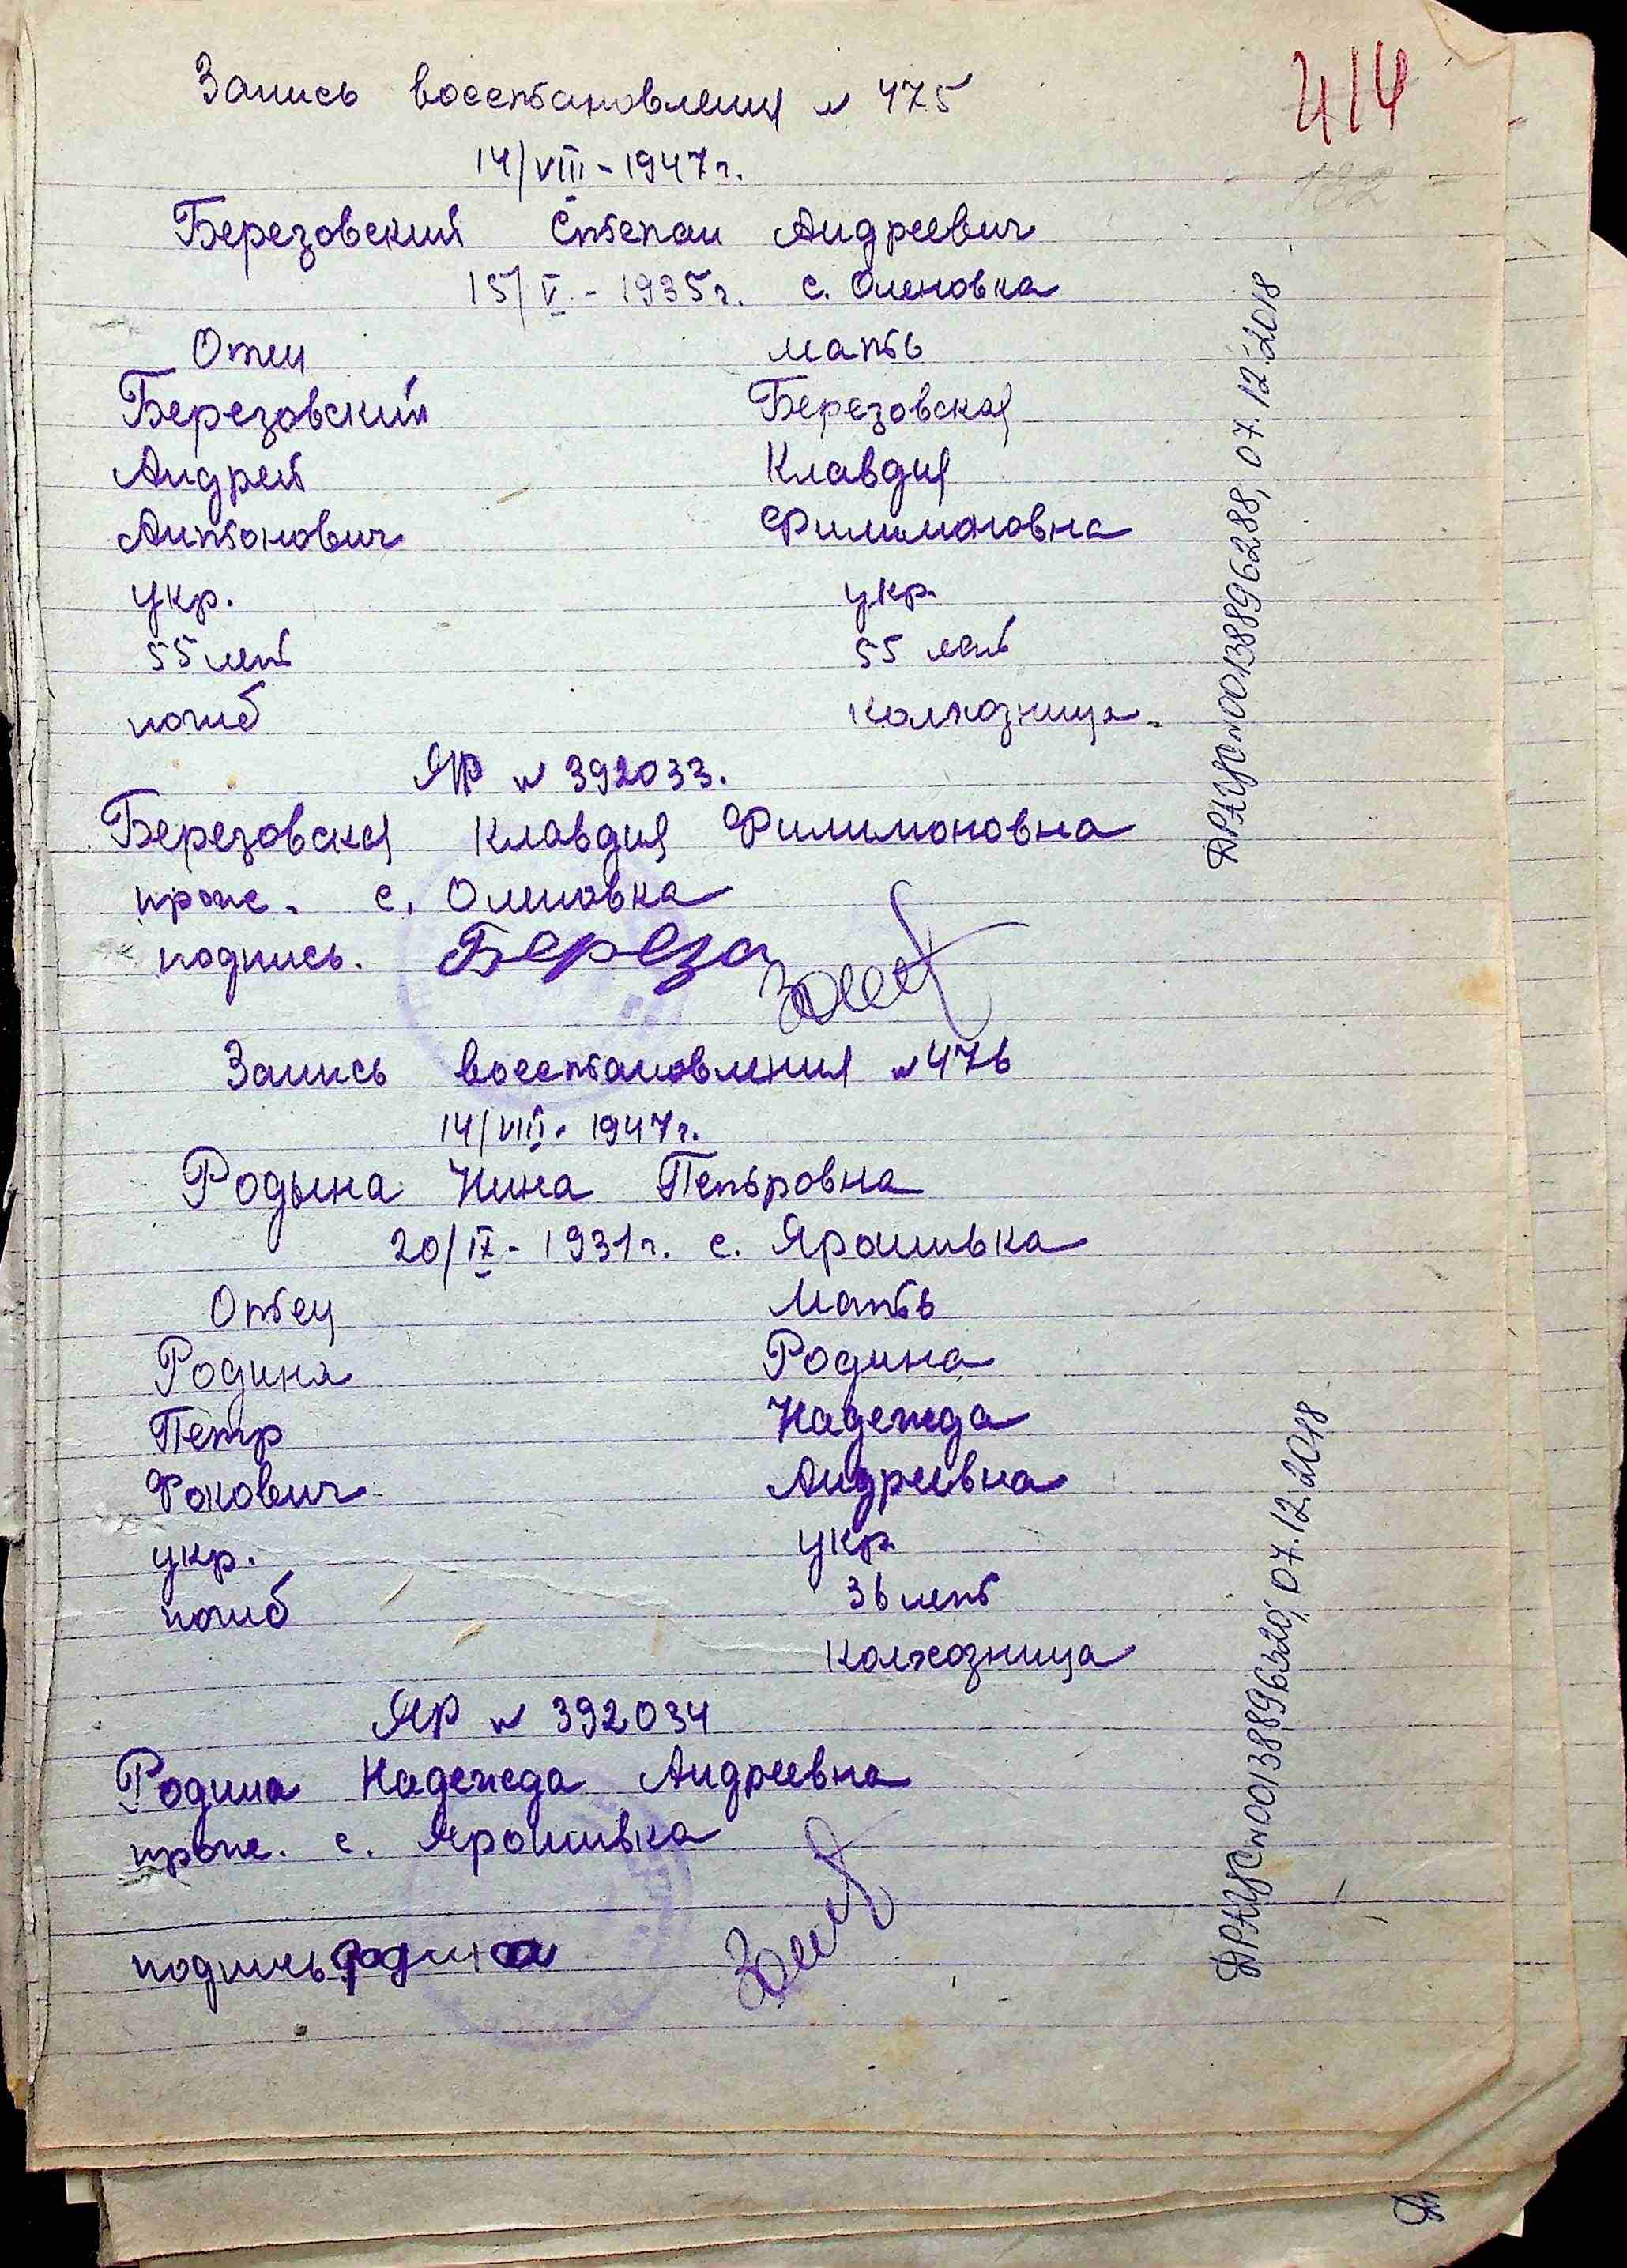 414
132
Запись восстановления № 475
14/VIII - 1947 г.
Березовский Степан Андреевич
15/V - 1935 г. с. Оленовка
Отец мать
Березовский Березовская
Андрей Клавдия
Антонович Филимоновна
укр. укр.
55 лет 55 лет
погиб колхозница.
ЯР № 392033.
Березовская Клавдия Филимоновна
прож. с. Оленовка
подпись. Береза
ДРАЦС №00138896288, 07.12.2018
Запись восстановления № 476
14/VIII. 1947 г.
Родына Нина Петровна
20/IX - 1931 г. с. Ярошивка
Отец Мать
Родина Родина
Петр Надежда
Фокович Андреевна
укр. укр.
погиб 36 лет
Колхозница
ЯР № 392034
Родина Надежда Андреевна
прож. с. Ярошивка
подпись Родина
ДРАЦС №00138896320, 07.12.2018